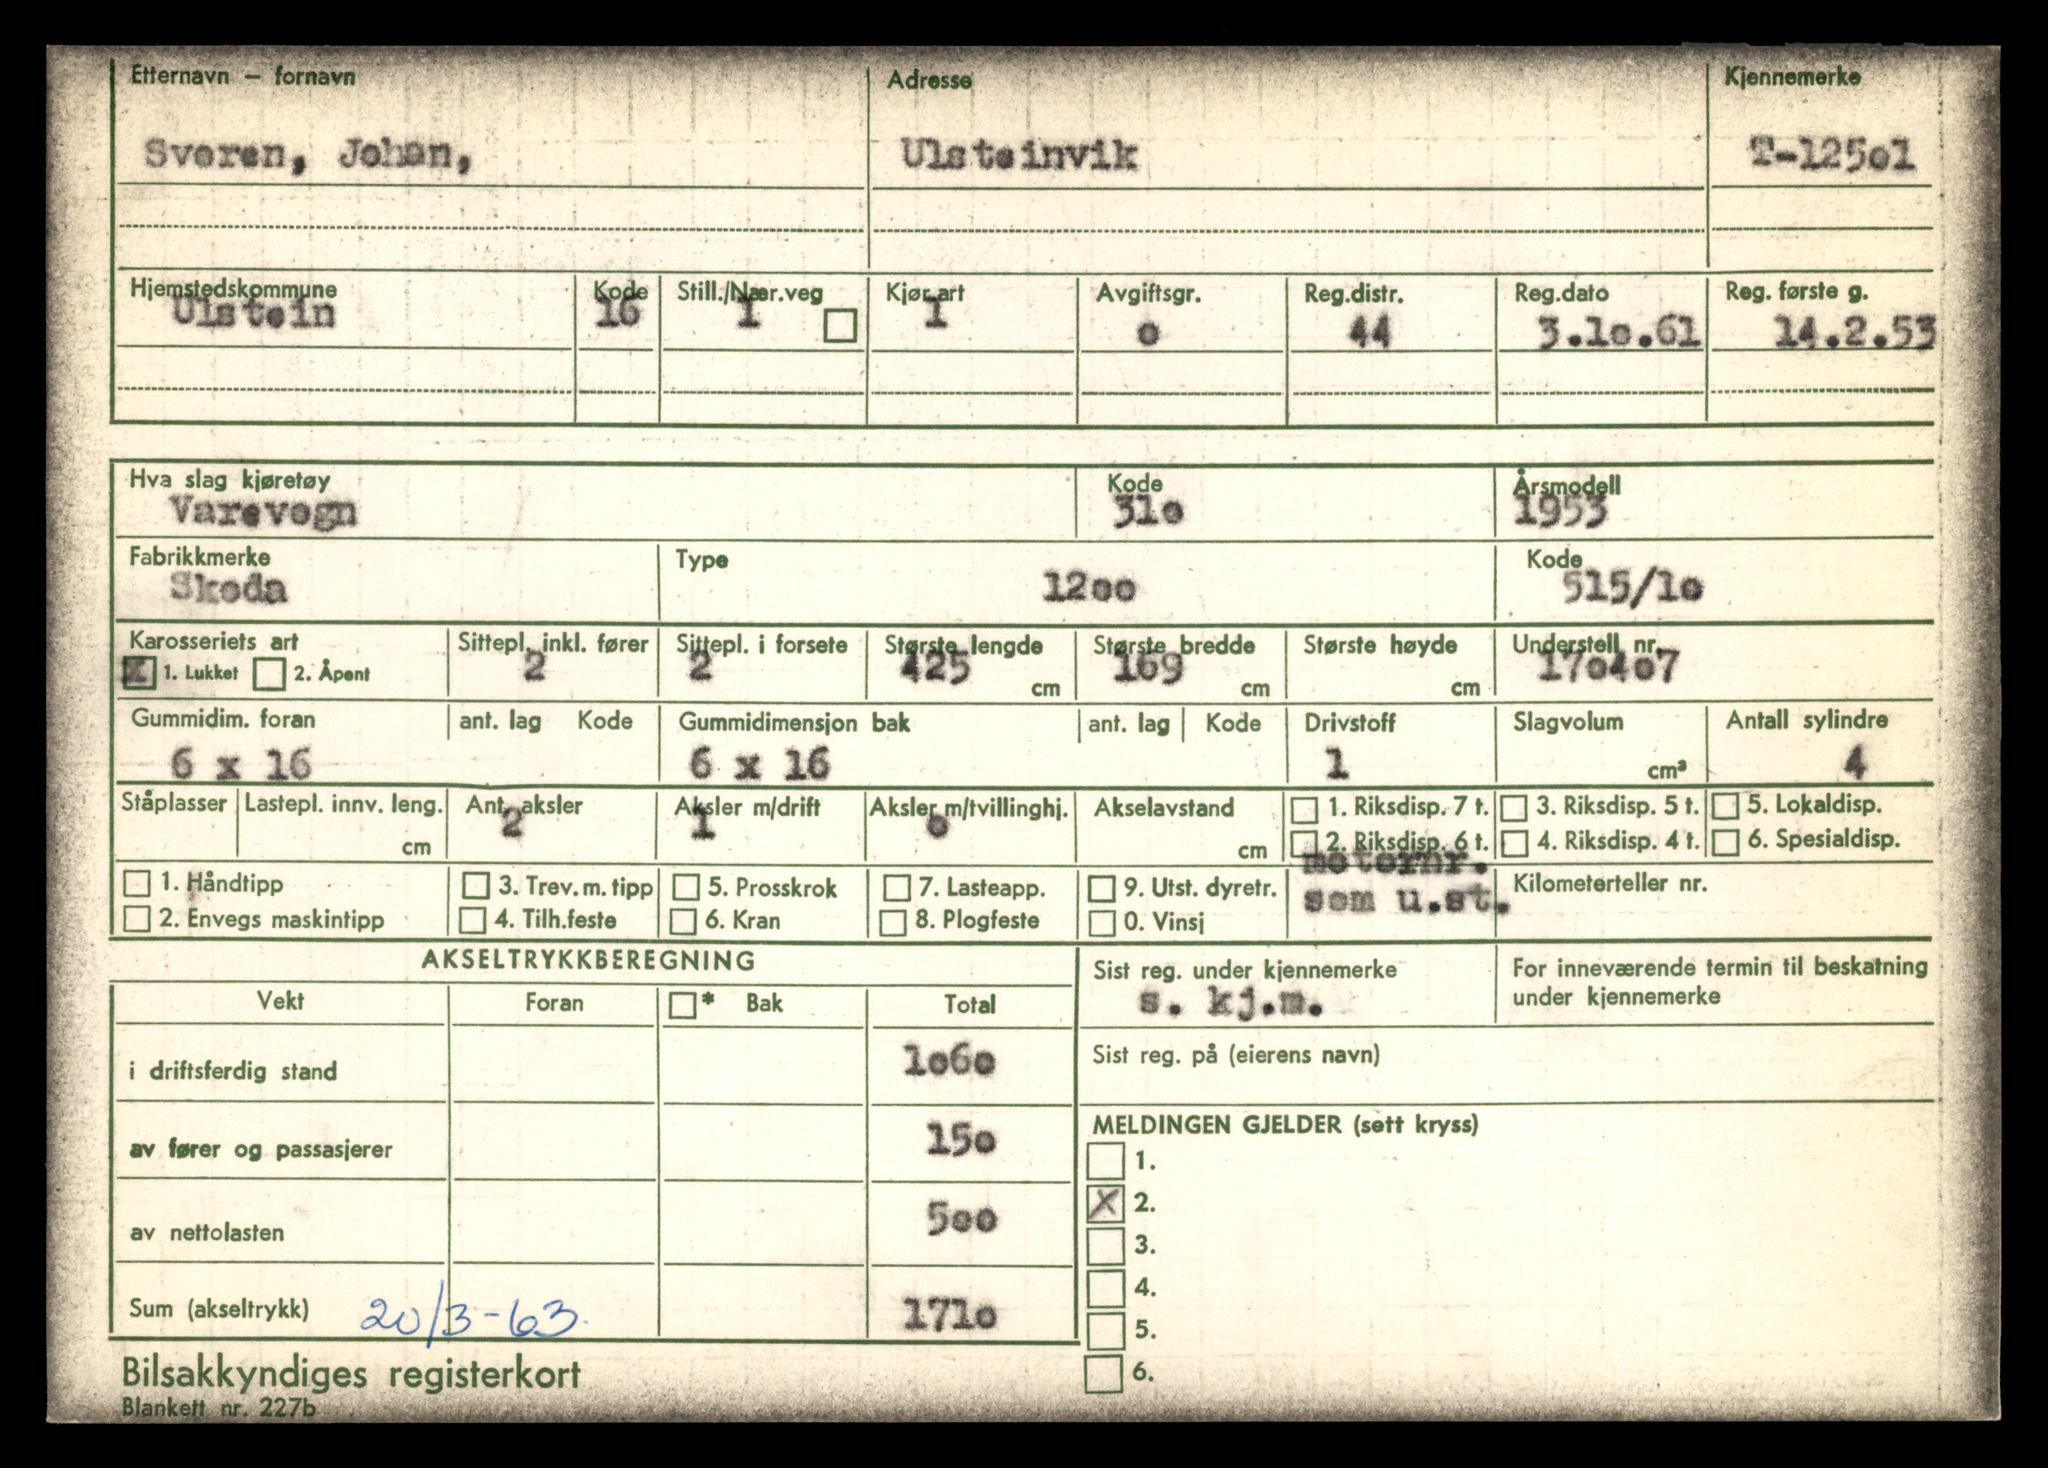 Etternavn – fornavn Adresse Kjennemerke
Sveren, Johan, Ulsteinvik T-125o1
Hjemstedskommune Kode Still./Nær.veg Kjør.art Avgiftsgr. Reg.distr. Reg.dato Reg. første g.
Ulstein 16 1 1 o 44 3.1o.61 14.2.53
Hva slag kjøretøy Kode Årsmodell
Varevogn 31o 1953
Fabrikkmerke Type Kode
Skoda 12oo 515/1o
Karosseriets art Sittepl. inkl. fører Sittepl. i forsete Største lengde Største bredde Største høyde Understell nr.
X 1. Lukket 2. Åpent 2 2 425 cm 169 cm cm 17o4o7
Gummidim. foran ant. lag Kode Gummidimensjon bak ant. lag Kode Drivstoff Slagvolum Antall sylindre
6 x 16 6 x 16 1 cm³ 4
Ståplasser Lastepl. innv. leng. Ant. aksler Aksler m/drift Aksler m/tvillinghj. Akselavstand 1. Riksdisp. 7 t. 3. Riksdisp. 5 t. 5. Lokaldisp.
cm 2 1 o cm 2. Riksdisp. 6 t. 4. Riksdisp. 4 t. 6. Spesialdisp.
motornr.
1. Håndtipp 3. Trev. m. tipp 5. Prosskrok 7. Lasteapp. 9. Utst. dyretr. som u.st. Kilometerteller nr.
2. Envegs maskintipp 4. Tilh.feste 6. Kran 8. Plogfeste 0. Vinsj
AKSELTRYKKBEREGNING Sist reg. under kjennemerke For inneværende termin til beskatning
under kjennemerke
Vekt Foran * Bak Total s. kj.m.
i driftsferdig stand 1o6o Sist reg. på (eierens navn)
av fører og passasjerer 15o MELDINGEN GJELDER (sett kryss)
1.
X 2.
av nettolasten 5oo 3.
4.
Sum (akseltrykk) 20/3-63. 171o 5.
Bilsakkyndiges registerkort 6.
Blankett nr. 227b